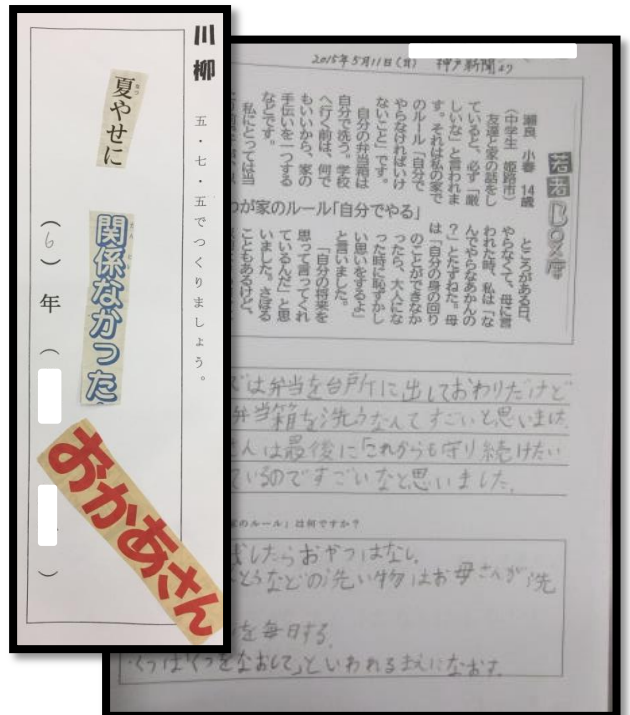 川柳
五・七・五でつくりましょう。
夏やせに
なつ
関係なかった
かんけい
おかあさん
(6)年(
)
2015年5月11日(月) 神戸新聞より
若者BOX席
瀬良 小春 14歳
(中学生 姫路市)
友達と家の話をし
ていると、必ず「厳
しいな」と言われま
す。それは私の家で
のルール「自分で
やらなければいけ
ないこと」です。
自分の弁当箱は
自分で洗う。学校
へ行く前は、何で
もいいから、家の
手伝いを一つする
などです。
私にとっては当
わが家のルール「自分でやる」
ところがある日、
やらなくて、母に言
われた時、私は「な
んでやらなあかんの
?」とたずねた。母
は「自分の身の回り
のことができなか
ったら、大人にな
った時に恥ずかし
い思いをするよ」
と言いました。
「自分の将来を
思って言ってくれ
ているんだ」と思
いました。さぼる
こともあるけど、
では弁当を台所に出しておわりだけど
弁当箱を洗うなんてすごいと思いました。
さんは最後に「これからも守り続けたい
ているのですごいなと思いました。
のルール」は何ですか?
残したらおやつはなし。
とうなどの洗い物はお母さんが洗
を毎日する。
くつは「くつをなおして」といわれるまえになおす。